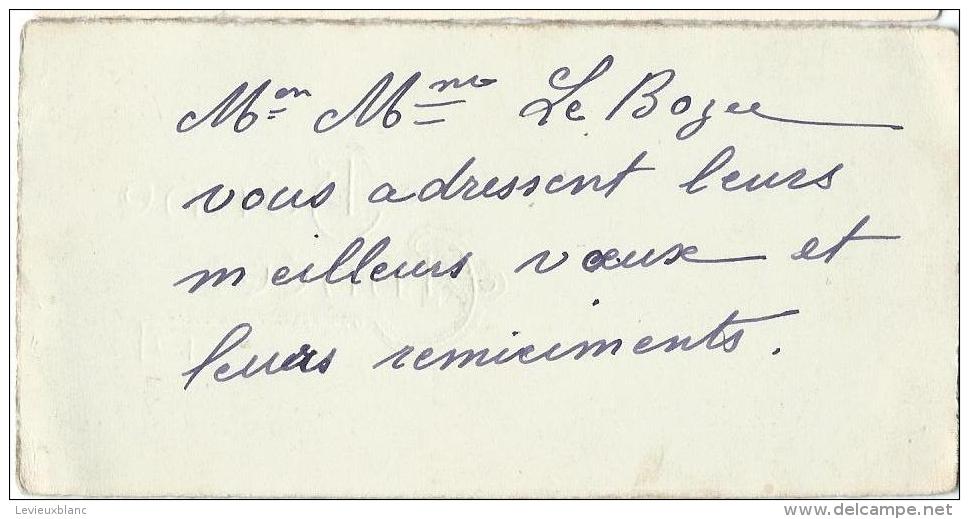 Mon Mme Le Bozec
vous adressent leurs
meilleurs vœux et
leurs remiciments.
Levieuxblanc
delcampe.net